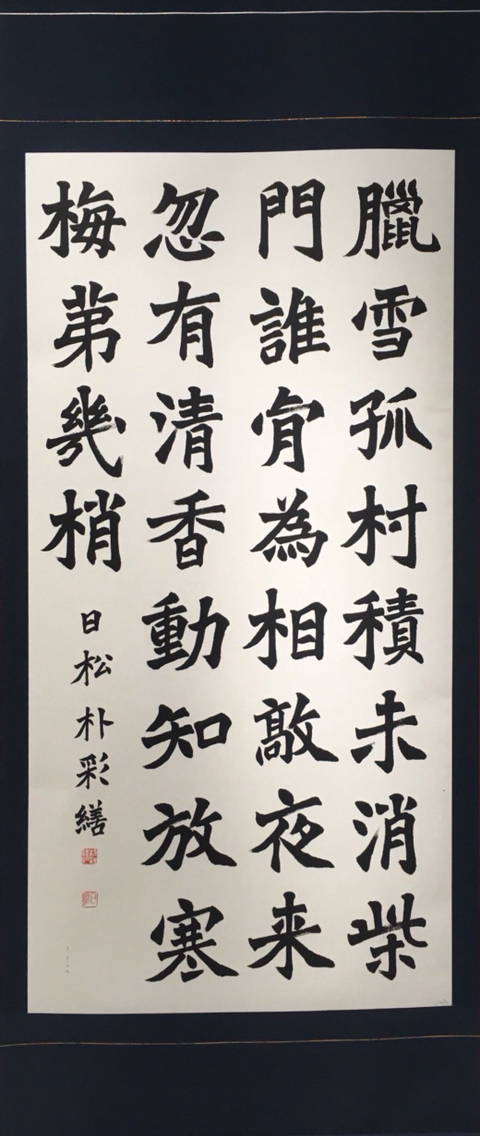 臘雪孤村積未消柴
門誰肎為相敲夜来
忽有清香動知放寒
梅苐幾梢
日松朴彩繕